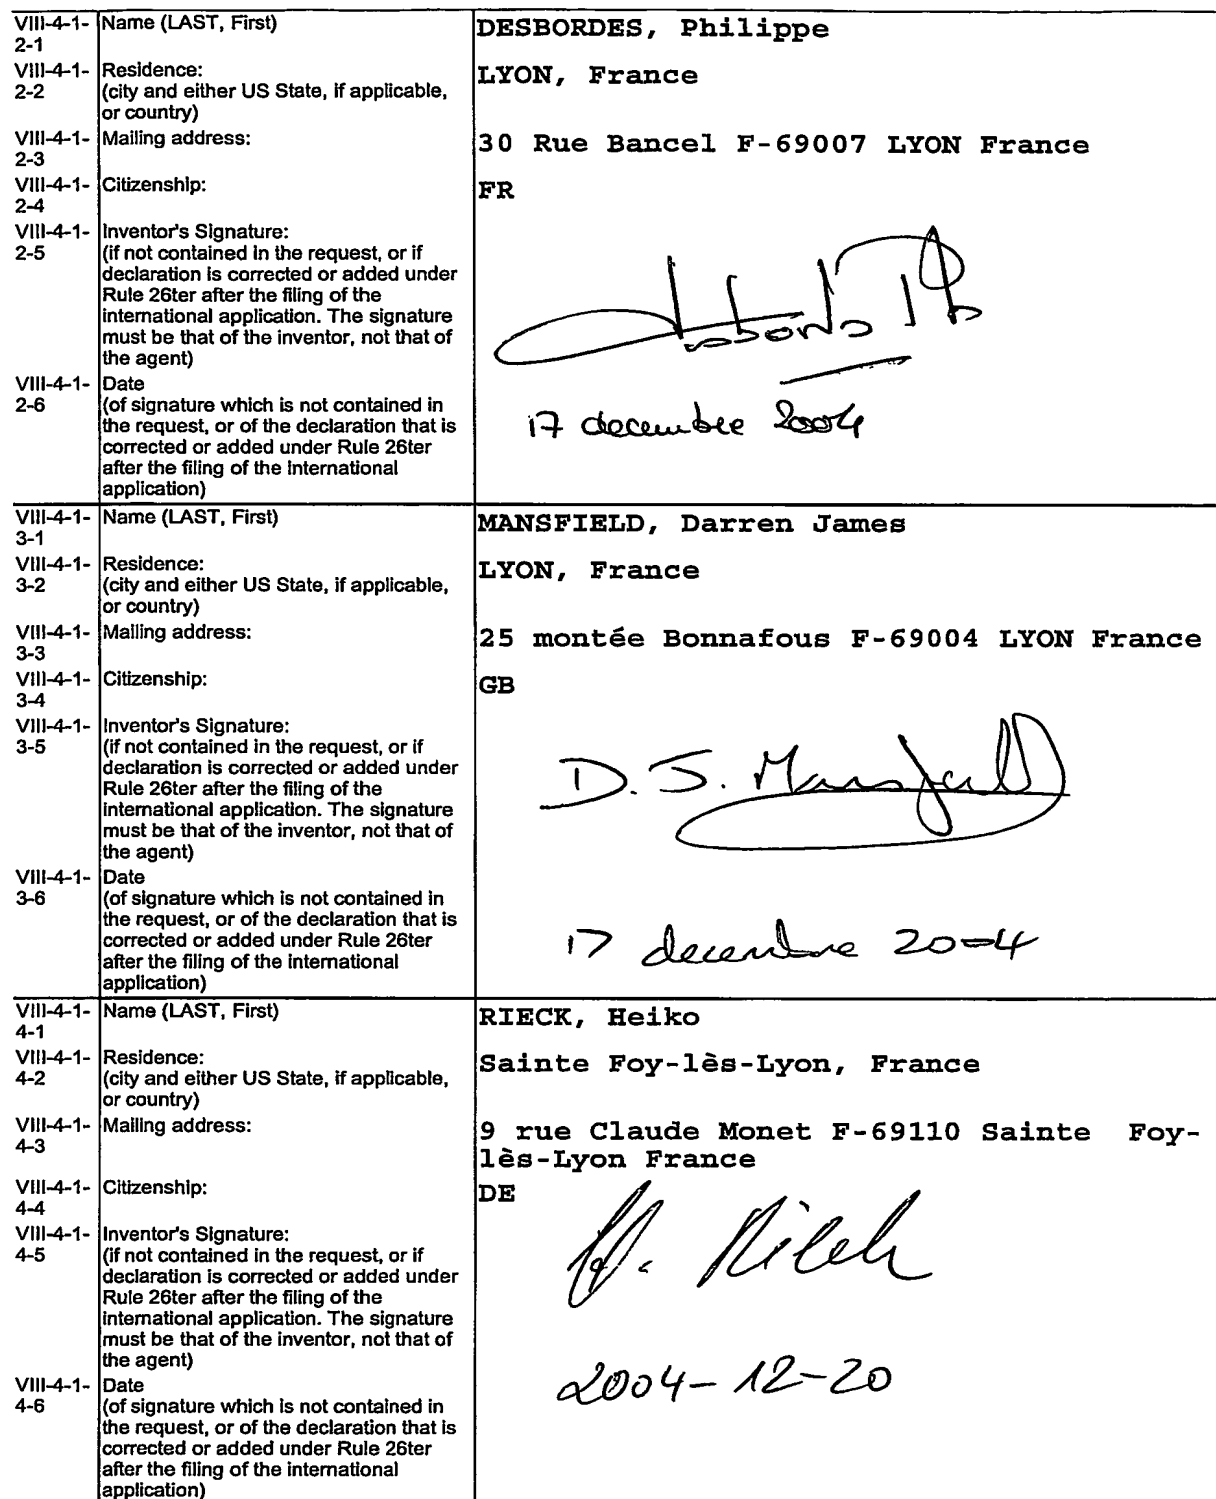 VIII-4-1- Name (LAST, First) DESBORDES, Philippe
2-1
VIII-4-1- Residence: LYON, France
2-2 (city and either US State, if applicable,
or country)
VIII-4-1- Mailing address: 30 Rue Bancel F-69007 LYON France
2-3
VIII-4-1- Citizenship: FR
2-4
VIII-4-1- Inventor's Signature:
2-5 (if not contained in the request, or if
declaration is corrected or added under
Rule 26ter after the filing of the
international application. The signature
must be that of the inventor, not that of
the agent)
VIII-4-1- Date
2-6 (of signature which is not contained in
the request, or of the declaration that is
corrected or added under Rule 26ter
after the filing of the international
application)
17 decembre 2004
VIII-4-1- Name (LAST, First) MANSFIELD, Darren James
3-1
VIII-4-1- Residence: LYON, France
3-2 (city and either US State, if applicable,
or country)
VIII-4-1- Mailing address: 25 montée Bonnafous F-69004 LYON France
3-3
VIII-4-1- Citizenship: GB
3-4
VIII-4-1- Inventor's Signature:
3-5 (if not contained in the request, or if
declaration is corrected or added under
Rule 26ter after the filing of the
international application. The signature
must be that of the inventor, not that of
the agent)
D. J. Mansfield
VIII-4-1- Date
3-6 (of signature which is not contained in
the request, or of the declaration that is
corrected or added under Rule 26ter
after the filing of the international
application)
17 decembre 2004
VIII-4-1- Name (LAST, First) RIECK, Heiko
4-1
VIII-4-1- Residence: Sainte Foy-lès-Lyon, France
4-2 (city and either US State, if applicable,
or country)
VIII-4-1- Mailing address: 9 rue Claude Monet F-69110 Sainte Foy-
4-3 lès-Lyon France
VIII-4-1- Citizenship: DE
4-4
VIII-4-1- Inventor's Signature:
4-5 (if not contained in the request, or if
declaration is corrected or added under
Rule 26ter after the filing of the
international application. The signature
must be that of the inventor, not that of
the agent)
H. Rieck
VIII-4-1- Date
4-6 (of signature which is not contained in
the request, or of the declaration that is
corrected or added under Rule 26ter
after the filing of the international
application)
2004-12-20